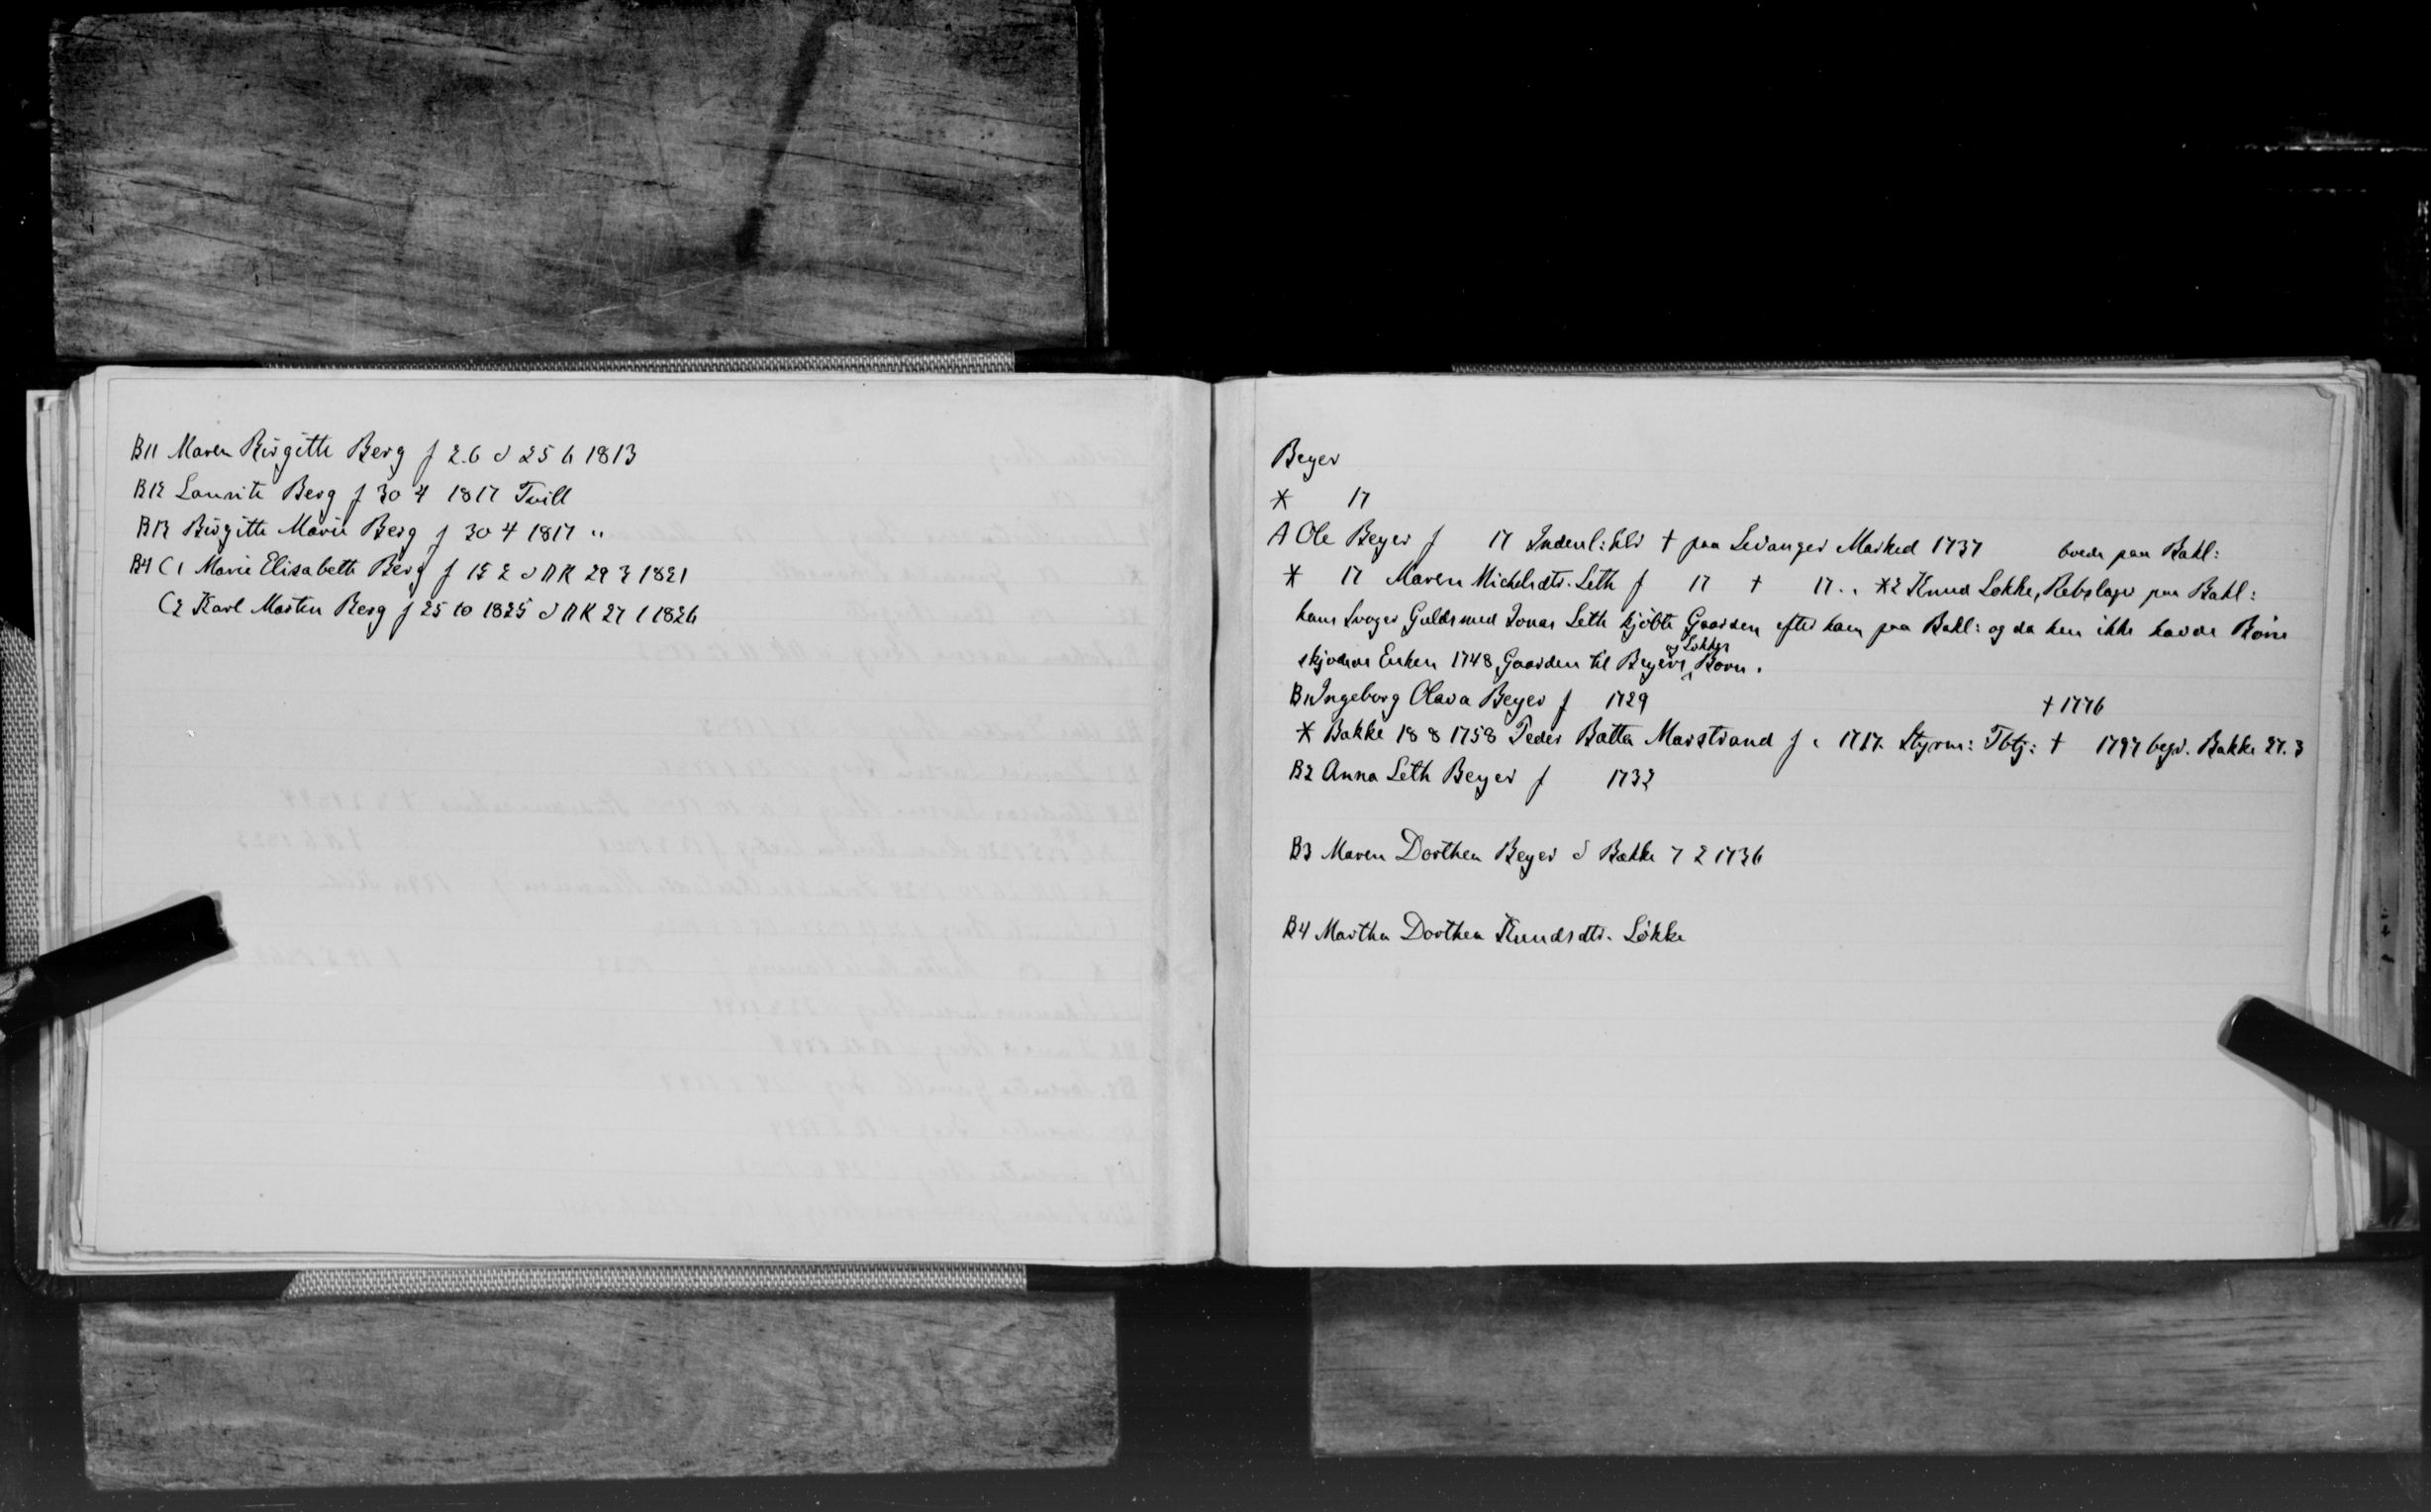 B11 Maren Birgitte Berg f 2.6 d 25 6 1813
B12 Laurits Berg f 30 4 1817 Tvill
B13 Birgitte Marie Berg f 30 4 1817 "
B4 C1 Marie Elisabeth Berg f 15 2 d DK 29 3 1821
C2 Karl Morten Berg f 25 10 1825 d DK 27 1 1826
Beyer
* 17
A Ole Beyer f 17 † paa Levanger Marked 1737 boede paa Bakl:
* 17 Maren Michelsdtr. Leth f 17 † 17.. *2 Knud Løkke, Rebslager paa Bakl:
hans Svoger Guldsmed Jonas Leth kjöbte Gaarden efter ham paa Bakl: og da han ikke havde Börn
skjödede Enken 1748 Gaarden til Beyers og Løkkes Börn.
B1 Ingeborg Olava Beyer f 1729 † 1776
* Bakke 18 8 1758 Peder Batta Marstrand f. 1717. Styrm: Tbtj: † 1797 begr. Bakke 27.3
B2 Anna Leth Beyer f 1732
B3 Maren Dorthea Beyer d Bakke 7 2 1736
B4 Martha Dorthea Knudsdtr. Løkke